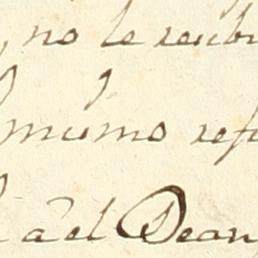 , no le recibi
mismo refe
a el Dean